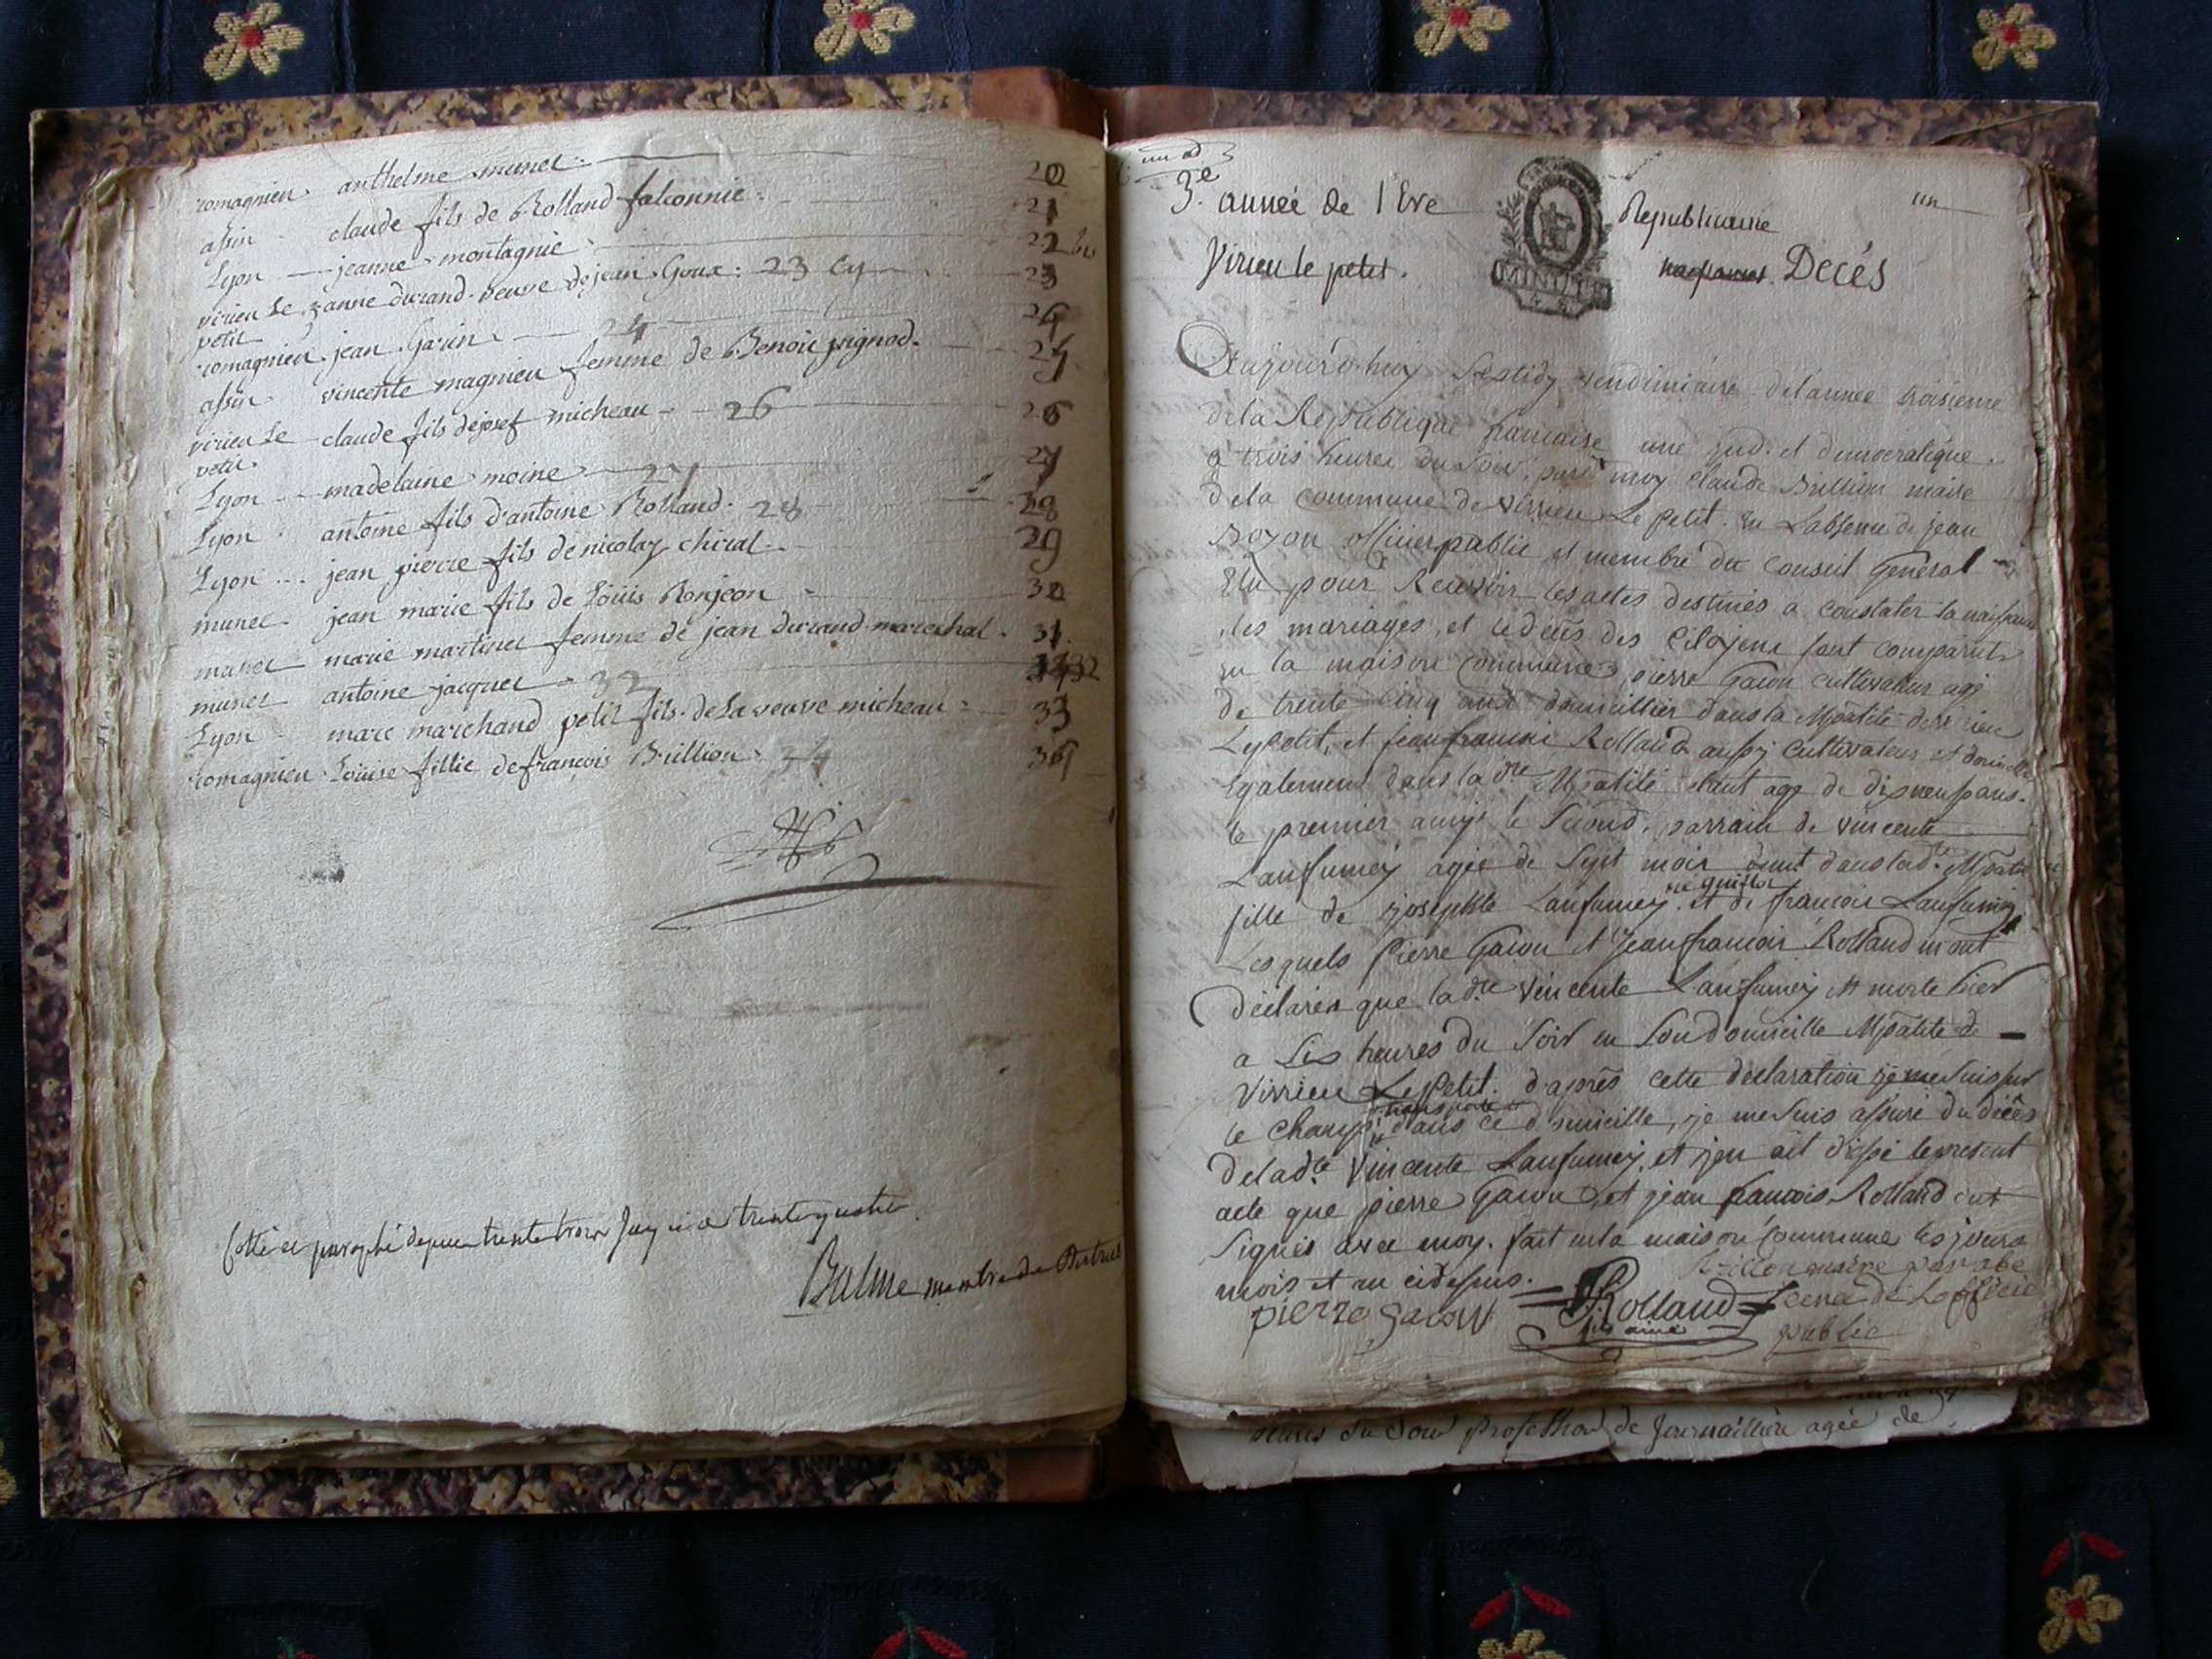 romagnieu. anthelme munet. 20
assin claude fils de Rolland falconnie. 21
Lyon jeanne montagnie 22 bis
virieu Le petit anne durand veuve de jean Goux: 23 23
romagnieu. jean Garin 24 24
assin vincente magnieu femme de Benoit pignod. 25
virieu Le petit. claude fils de josef micheau 26 26
Lyon madelaine moine 27 27
Lyon antoine fils d'antoine Rolland. 28 28
Lyon jean pierre fils de nicolay chiral. 29
munet jean marie fils de Loüis Bonjeon 30
munet marie martinet femme de jean durand marechal. 31.
munet antoine jacquet 32 32
Lyon marc marchand petit fils de La veuve micheau 33
romagnieu Loüise fillie de françois Brillion 34 34
Cotté et paraphé depuis trente trois jusqu'a trente quatre.
Balme membre du District
3e. année de l'Ere Republicaine un
Virieu le petit. MINUTE Decés
Aujourd'huy Septidy vendimiaire de l'année troisieme
de la Republique francaise une ind. et democratique.
a trois heures du Soir, pard. moy Claude Brillion maire
de la commune de Virrieu Le petit. En L'absence de jean
officier public et membre du Conseil General
Elu pour Recevoir les actes destinés a constater la naissance
les mariages, et le décès des Citoyens sont comparuts
en la maison commune, pierre Gacon cultivateur agé
de trente cinq ans domicillier dans la Mpalité de virieu
Le petit, et jean francois Rolland aussy cultivateur et domicillié
Egalement dans la dte Mpalité etant agé de dix neuf ans.
le premier amÿ le Second. parrain de vincente
Laufumey agée de Sept mois dans lad.te Mpalité
fille de josephte Laufumey. et de francois Laufumey
Lesquels Pierre Gacon et Jean francois Rolland m'ont
déclarés que la dte Vincente Laufumey est morte hier
a Six heures du Soir en Son domicille Mpalité de
Virrieu Le Petit. d'après cette déclaration je me Suis sur
le champ transporté dans ce domicille, je me suis assuré du décès
de lad.te Vincente Laufumey, et j'en ait dressé le present
acte que pierre Gacon, et jean francois Rolland ont
Signés avec moy. fait en la maison commune les jours
mois et an cidessus. Brillon maire
pierre gacon Rolland fils ainé public
heures du Soir profession de Journaillière agée de